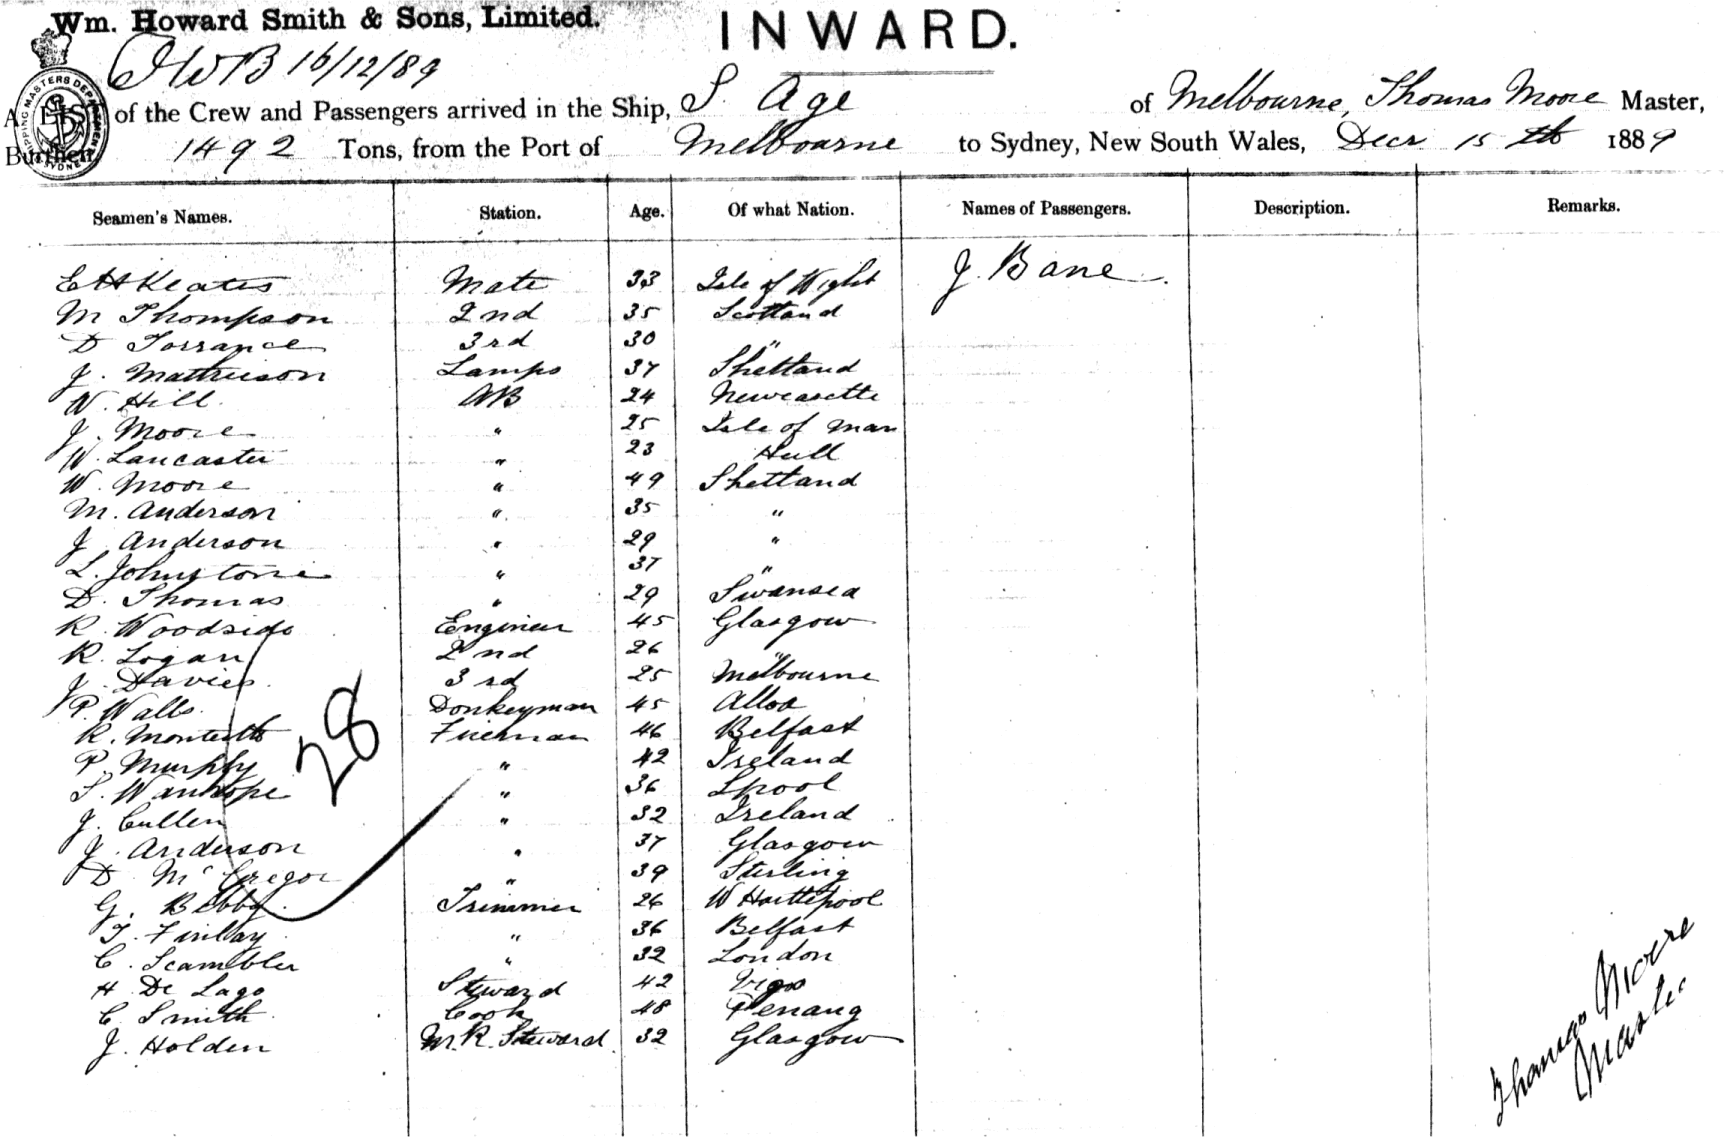 Wm. Howard Smith & Sons, Limited.
INWARD.
16/12/89
A LIST of the Crew and Passengers arrived in the Ship, S. Age of Melbourne, Thomas Moore Master,
Burthen 1492 Tons, from the Port of Melbourne to Sydney, New South Wales, Decr 15th 1889
Seamen's Names. Station. Age. Of what Nation. Names of Passengers. Description. Remarks.
E H Keates Mate 33 Isle of Wight J. Bane
M Thompson 2nd 35 Scotland
D Torrance 3rd 30 "
J. Mathieson Lamps 37 Shetland
W. Hill AB 24 Newcastle
J. Moore " 25 Isle of Man
W. Lancaster " 23 Hull
W. Moore " 49 Shetland
M. Anderson " 35 "
J Anderson " 29 "
L. Johnstone " 37 "
D. Thomas " 29 Swansea
R. Woodside Engineer 45 Glasgow
R. Logan 2nd 26 "
J. Davies 3rd 25 Melbourne
P. Walls Donkeyman 45 Alloa
R. Monteith Fireman 46 Belfast
P. Murphy " 42 Ireland
S. Wanhope " 36 Lpool
J. Cullen " 32 Ireland
J. Anderson " 37 Glasgow
D. McGregor " 39 Sterling
G. Bibby Trimmer 26 W Hartlepool
T. Finlay " 36 Belfast
C. Scambler " 32 London
H De Lago Steward 42 Vigo
C. Smith Cook 48 Penang
J. Holden M.R. Steward 32 Glasgow
28
Thomas Moore
Master